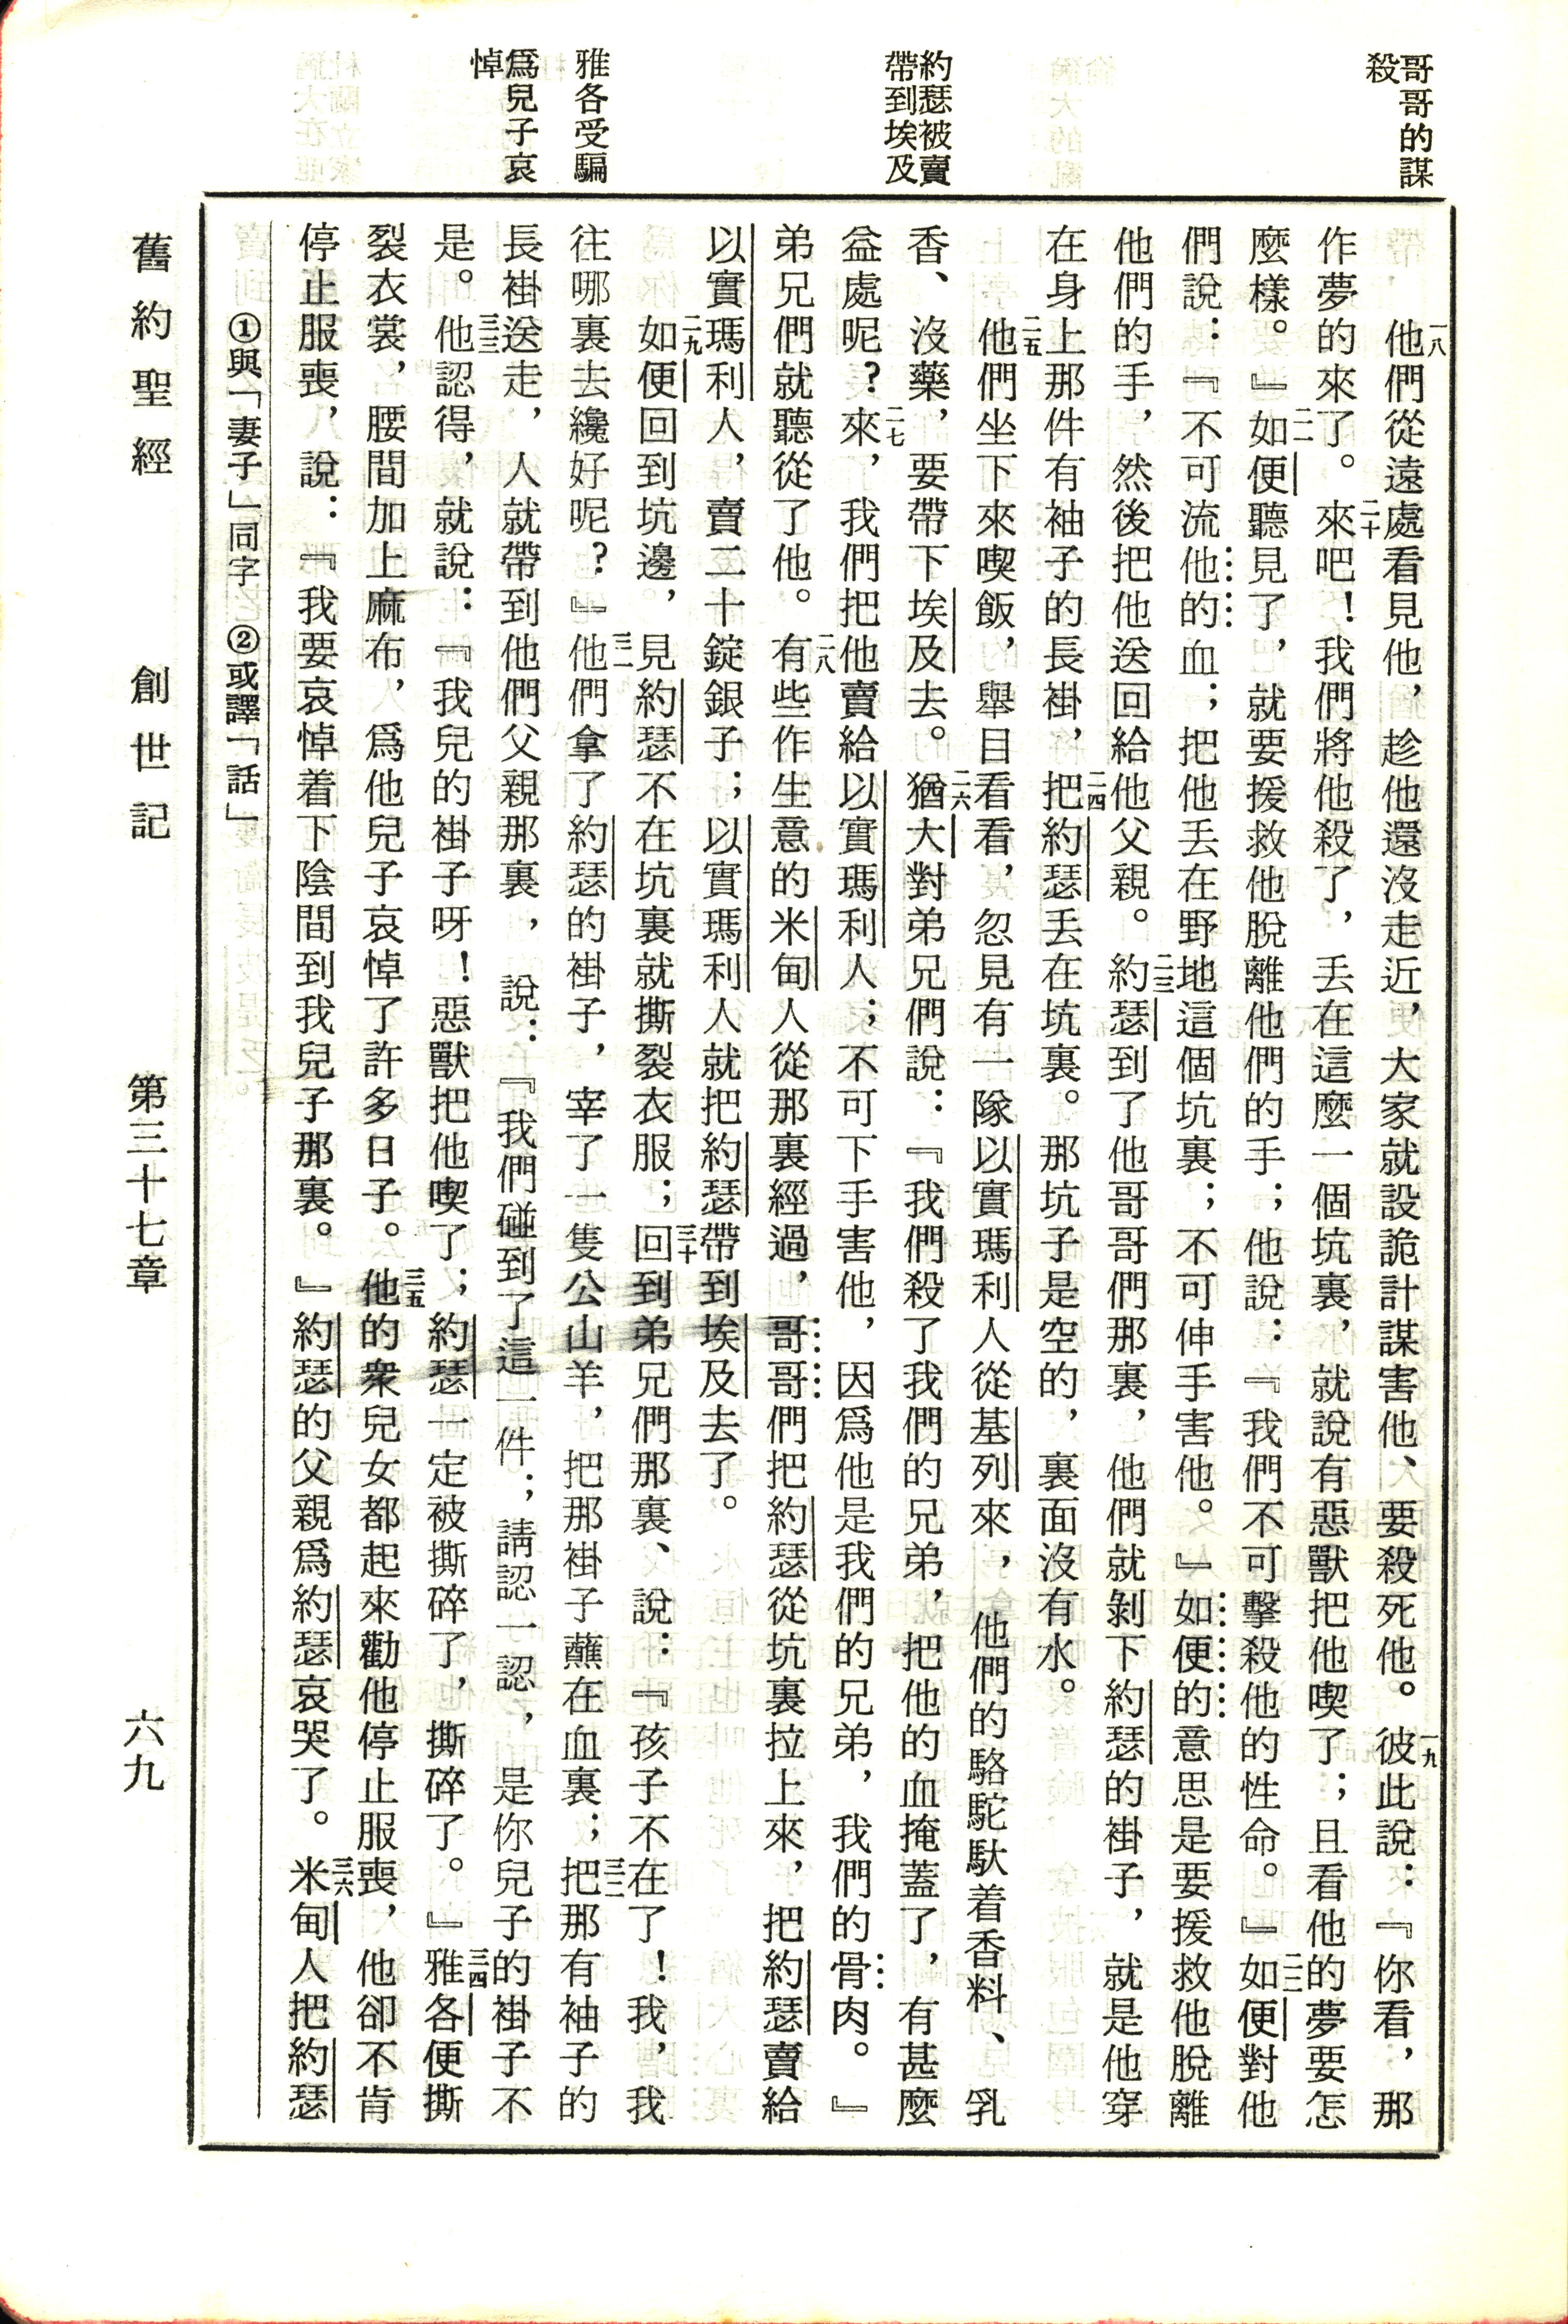 哥哥的謀
殺
約瑟被賣
帶到埃及
雅各受騙
爲兒子哀
悼
一八他們從遠處看見他，趁他還沒走近，大家就設詭計謀害他、要殺死他。一九彼此說：『你看，那
作夢的來了。二十來吧！我們將他殺了，丟在這麼一個坑裏，就說有惡獸把他喫了；且看他的夢要怎
麼樣。』二一如便聽見了，就要援救他脫離他們的手；他說：『我們不可擊殺他的性命。』二二如便對他
們說：『不可流他的血；把他丟在野地這個坑裏；不可伸手害他。』如便的意思是要援救他脫離
他們的手，然後把他送回給他父親。二三約瑟到了他哥哥們那裏，他們就剝下約瑟的褂子，就是他穿
在身上那件有袖子的長褂，二四把約瑟丟在坑裏。那坑子是空的，裏面沒有水。
二五他們坐下來喫飯，舉目看看，忽見有一隊以實瑪利人從基列來，他們的駱駝馱着香料、乳
香、沒藥，要帶下埃及去。二六猶大對弟兄們說：『我們殺了我們的兄弟，把他的血掩蓋了，有甚麼
益處呢？二七來，我們把他賣給以實瑪利人；不可下手害他，因爲他是我們的兄弟，我們的骨肉。』
弟兄們就聽從了他。二八有些作生意的米甸人從那裏經過，哥哥們把約瑟從坑裏拉上來，把約瑟賣給
以實瑪利人，賣二十錠銀子；以實瑪利人就把約瑟帶到埃及去了。
二九如便回到坑邊，見約瑟不在坑裏就撕裂衣服；三十回到弟兄們那裏、說：『孩子不在了！我，我
往哪裏去纔好呢？』三一他們拿了約瑟的褂子，宰了一隻公山羊，把那褂子蘸在血裏；三二把那有袖子的
長褂送走，人就帶到他們父親那裏，說：『我們碰到了這一件；請認一認，是你兒子的褂子不
是。三三他認得，就說：『我兒的褂子呀！惡獸把他喫了；約瑟一定被撕碎了，撕碎了。』三四雅各便撕
裂衣裳，腰間加上麻布，爲他兒子哀悼了許多日子。三五他的衆兒女都起來勸他停止服喪，他卻不肯
停止服喪，說：『我要哀悼着下陰間到我兒子那裏。』約瑟的父親爲約瑟哀哭了。三六米甸人把約瑟
①與「妻子」同字 ②或譯「話」
舊約聖經 創世記 第三十七章 六九